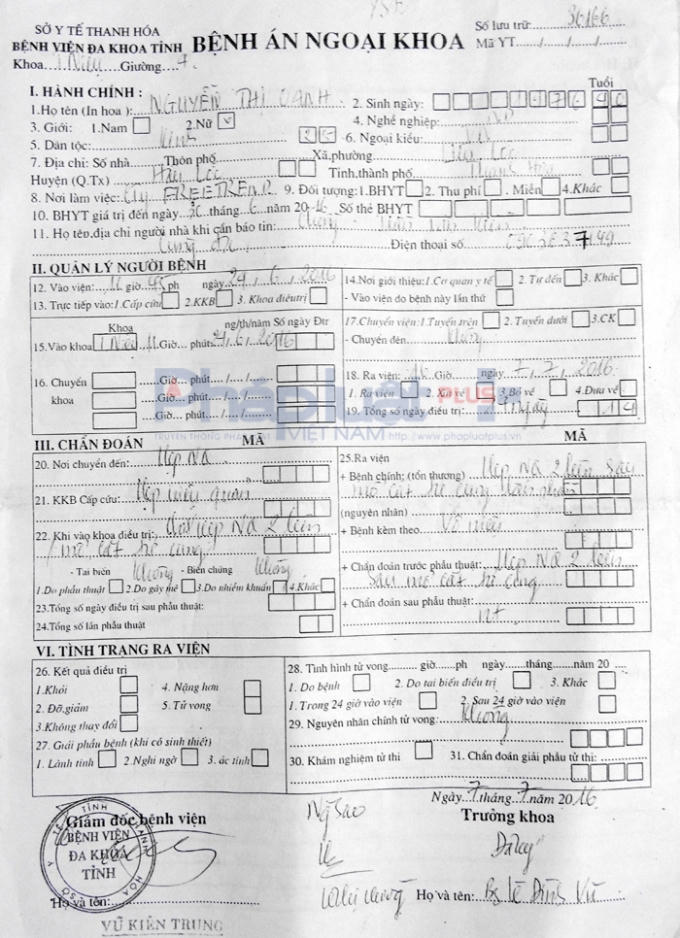 SỞ Y TẾ THANH HÓA
BỆNH VIỆN ĐA KHOA TỈNH
Khoa Giường 4
BỆNH ÁN NGOẠI KHOA
Số lưu trữ: 36166
Mã YT
I. HÀNH CHÍNH :
1.Họ tên (In hoa ): NGUYỄN THỊ OANH
2. Sinh ngày: 1976
Tuổi
40
3. Giới: 1.Nam 2.Nữ x
4. Nghề nghiệp:
5. Dân tộc: Kinh 25
6. Ngoại kiều:
7. Địa chỉ: Số nhà Thôn phố Xã,phường
Huyện (Q.Tx) Hậu Lộc Tỉnh,thành phố Thanh Hóa
8. Nơi làm việc: Cty FREETREND
9. Đối tượng:1.BHYT 2. Thu phí . Miễn 4.Khác
10. BHYT giá trị đến ngày 30 tháng 6 năm 2016 Số thẻ BHYT
11. Họ tên,địa chỉ người nhà khi cần báo tin: Chồng
Điện thoại số
II. QUẢN LÝ NGƯỜI BỆNH
12. Vào viện: giờ 45 ph ngày 24/6/2016
13. Trực tiếp vào: 1.Cấp cứu 2.KKB 3. Khoa điều trị
14.Nơi giới thiệu:1.Cơ quan y tế 2. Tự đến 3. Khác
- Vào viện do bệnh này lần thứ
Khoa ng/th/năm Số ngày Đtr
15.Vào khoa Giờ... phút 2016
16. Chuyển khoa
Giờ... phút..../..../....
Giờ... phút..../..../....
Giờ... phút..../..../....
17.Chuyển viện:1.Tuyến trên 2. Tuyến dưới 3.CK
- Chuyển đến Không
18. Ra viện: 16 Giờ ngày 7/7/2016
1. Ra viện 2. Xin về 3.Bỏ về 4.Đưa về
19. Tổng số ngày điều trị: ngày 14
Pháp luật PLUS
TRUYỀN THÔNG PHÁP LUẬT VIỆT NAM http://www.phapluatplus.vn
III. CHẨN ĐOÁN MÃ
MÃ
20. Nơi chuyển đến: Hẹp NQ
21. KKB Cấp cứu: Hẹp niệu quản
22. Khi vào khoa điều trị: hẹp NQ 2 bên
mổ cắt tử cung
- Tai biến Không - Biến chứng Không
1.Do phẫu thuật 2.Do gây mê 3.Do nhiễm khuẩn 4.Khác
23.Tổng số ngày điều trị sau phẫu thuật:
24.Tổng số lần phẫu thuật
25.Ra viện
+ Bệnh chính: (tổn thương) Hẹp NQ 2 bên sau
mổ cắt tử cung
(nguyên nhân)
+ Bệnh kèm theo Vô niệu
+ Chẩn đoán trước phẫu thuật: Hẹp NQ 2 bên
sau mổ cắt tử cung
+ Chẩn đoán sau phẫu thuật:
nt
VI. TÌNH TRẠNG RA VIỆN
26. Kết quả điều trị
1.Khỏi 4. Nặng hơn
2. Đỡ,giảm 5. Tử vong
3.Không thay đổi
27. Giải phẫu bệnh (khi có sinh thiết)
1. Lành tính 2.Nghi ngờ 3. ác tính
28. Tình hình tử vong giờ ph ngày tháng năm 20
1. Do bệnh 2. Do tai biến điều trị 3. Khác
1. Trong 24 giờ vào viện 2. Sau 24 giờ vào viện
29. Nguyên nhân chính tử vong: Không
30. Khám nghiệm tử thi 31. Chẩn đoán giải phẫu tử thi:
Ngày 7 tháng 7 năm 2016
Giám đốc bệnh viện
Trưởng khoa
BỆNH VIỆN
ĐA KHOA
TỈNH
Ng Sao
Họ và tên:
Họ và tên: Bs Lê Đình Vũ
VŨ KIÊN TRUNG